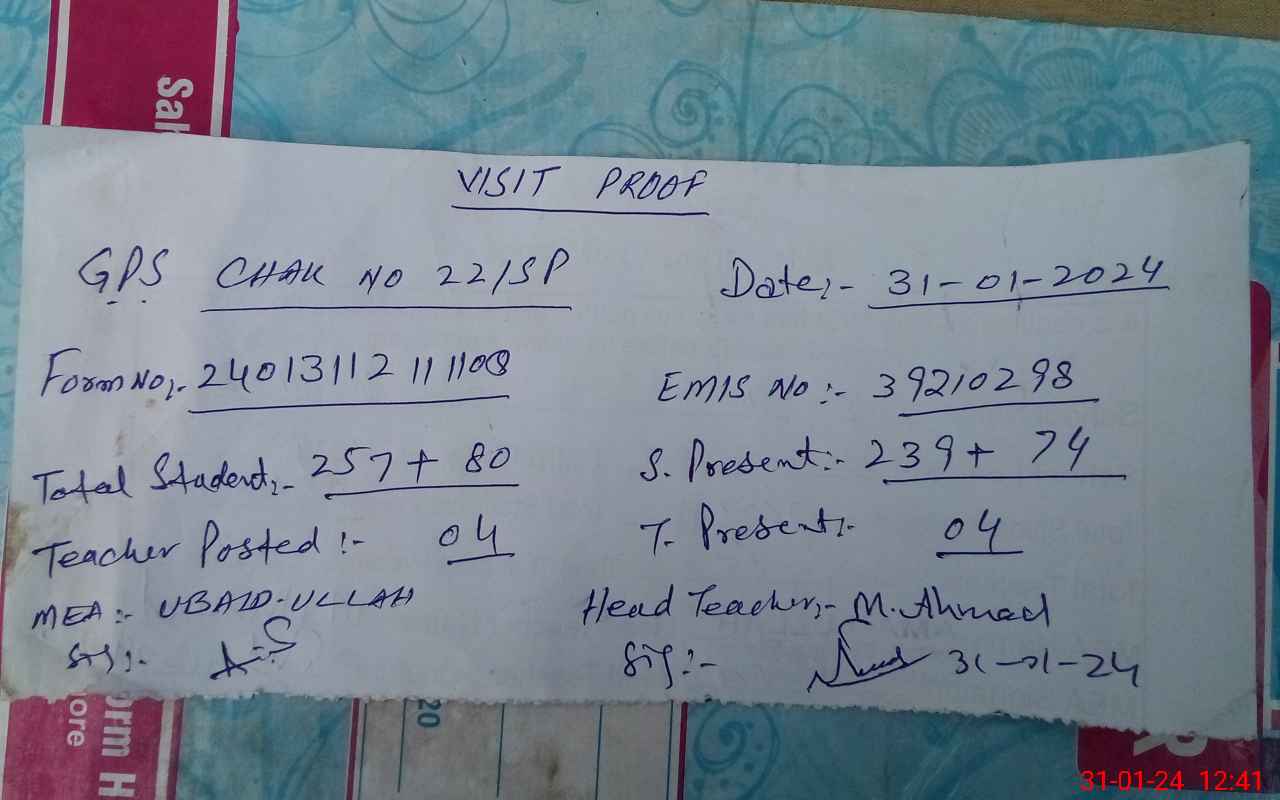 Sah
VISIT PROOF
GPS CHAK NO 22/SP Date:- 31-01-2024
Form No:- 24013112111108 EMIS No:- 39210298
Total Student:- 257+ 80 S. Present:- 239+ 74
Teacher Posted:- 04 T. Present:- 04
MEA:- UBAID-ULLAH Head Teacher:- M. Ahmad
Sig:- Sig:- 31-01-24
orm H
ore
20
R
31-01-24 12:41